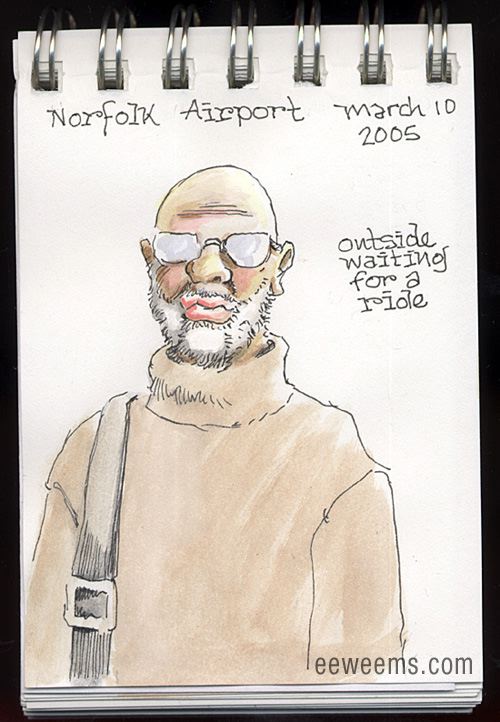 Norfolk Airport march 10
2005
outside
waiting
for a
ride
eeweems.com